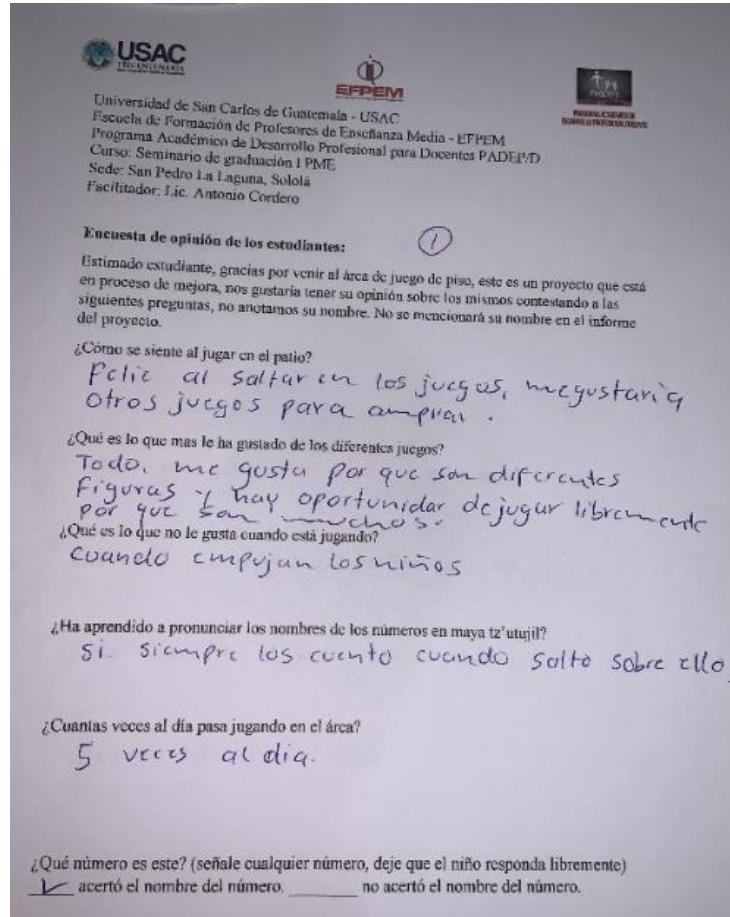 USAC
TRICENTENARIA
EFPEM
Universidad de San Carlos de Guatemala - USAC
Escuela de Formación de Profesores de Enseñanza Media - EFPEM
Programa Académico de Desarrollo Profesional para Docentes PADEP/D
Curso: Seminario de graduación I PME
Sede: San Pedro La Laguna, Sololá
Facilitador: Lic. Antonio Cordero
Encuesta de opinión de los estudiantes:
1
Estimado estudiante, gracias por venir al área de juego de piso, este es un proyecto que está
en proceso de mejora, nos gustaría tener su opinión sobre los mismos contestando a las
siguientes preguntas, no anotamos su nombre. No se mencionará su nombre en el informe
del proyecto.
¿Cómo se siente al jugar en el patio?
Feliz al saltar en los juegos, me gustaria
otros juegos para ampliar.
¿Qué es lo que mas le ha gustado de los diferentes juegos?
Todo, me gusta por que son diferentes
figuras y hay oportunidar de jugar libremente
por que son muchos.
¿Qué es lo que no le gusta cuando está jugando?
Cuando empujan los niños
¿Ha aprendido a pronunciar los nombres de los números en maya tz'utujil?
Si. siempre los cuento cuando salto sobre ello
¿Cuantas veces al día pasa jugando en el área?
5 veces al dia.
¿Qué número es este? (señale cualquier número, deje que el niño responda libremente)
✓ acertó el nombre del número. ______ no acertó el nombre del número.